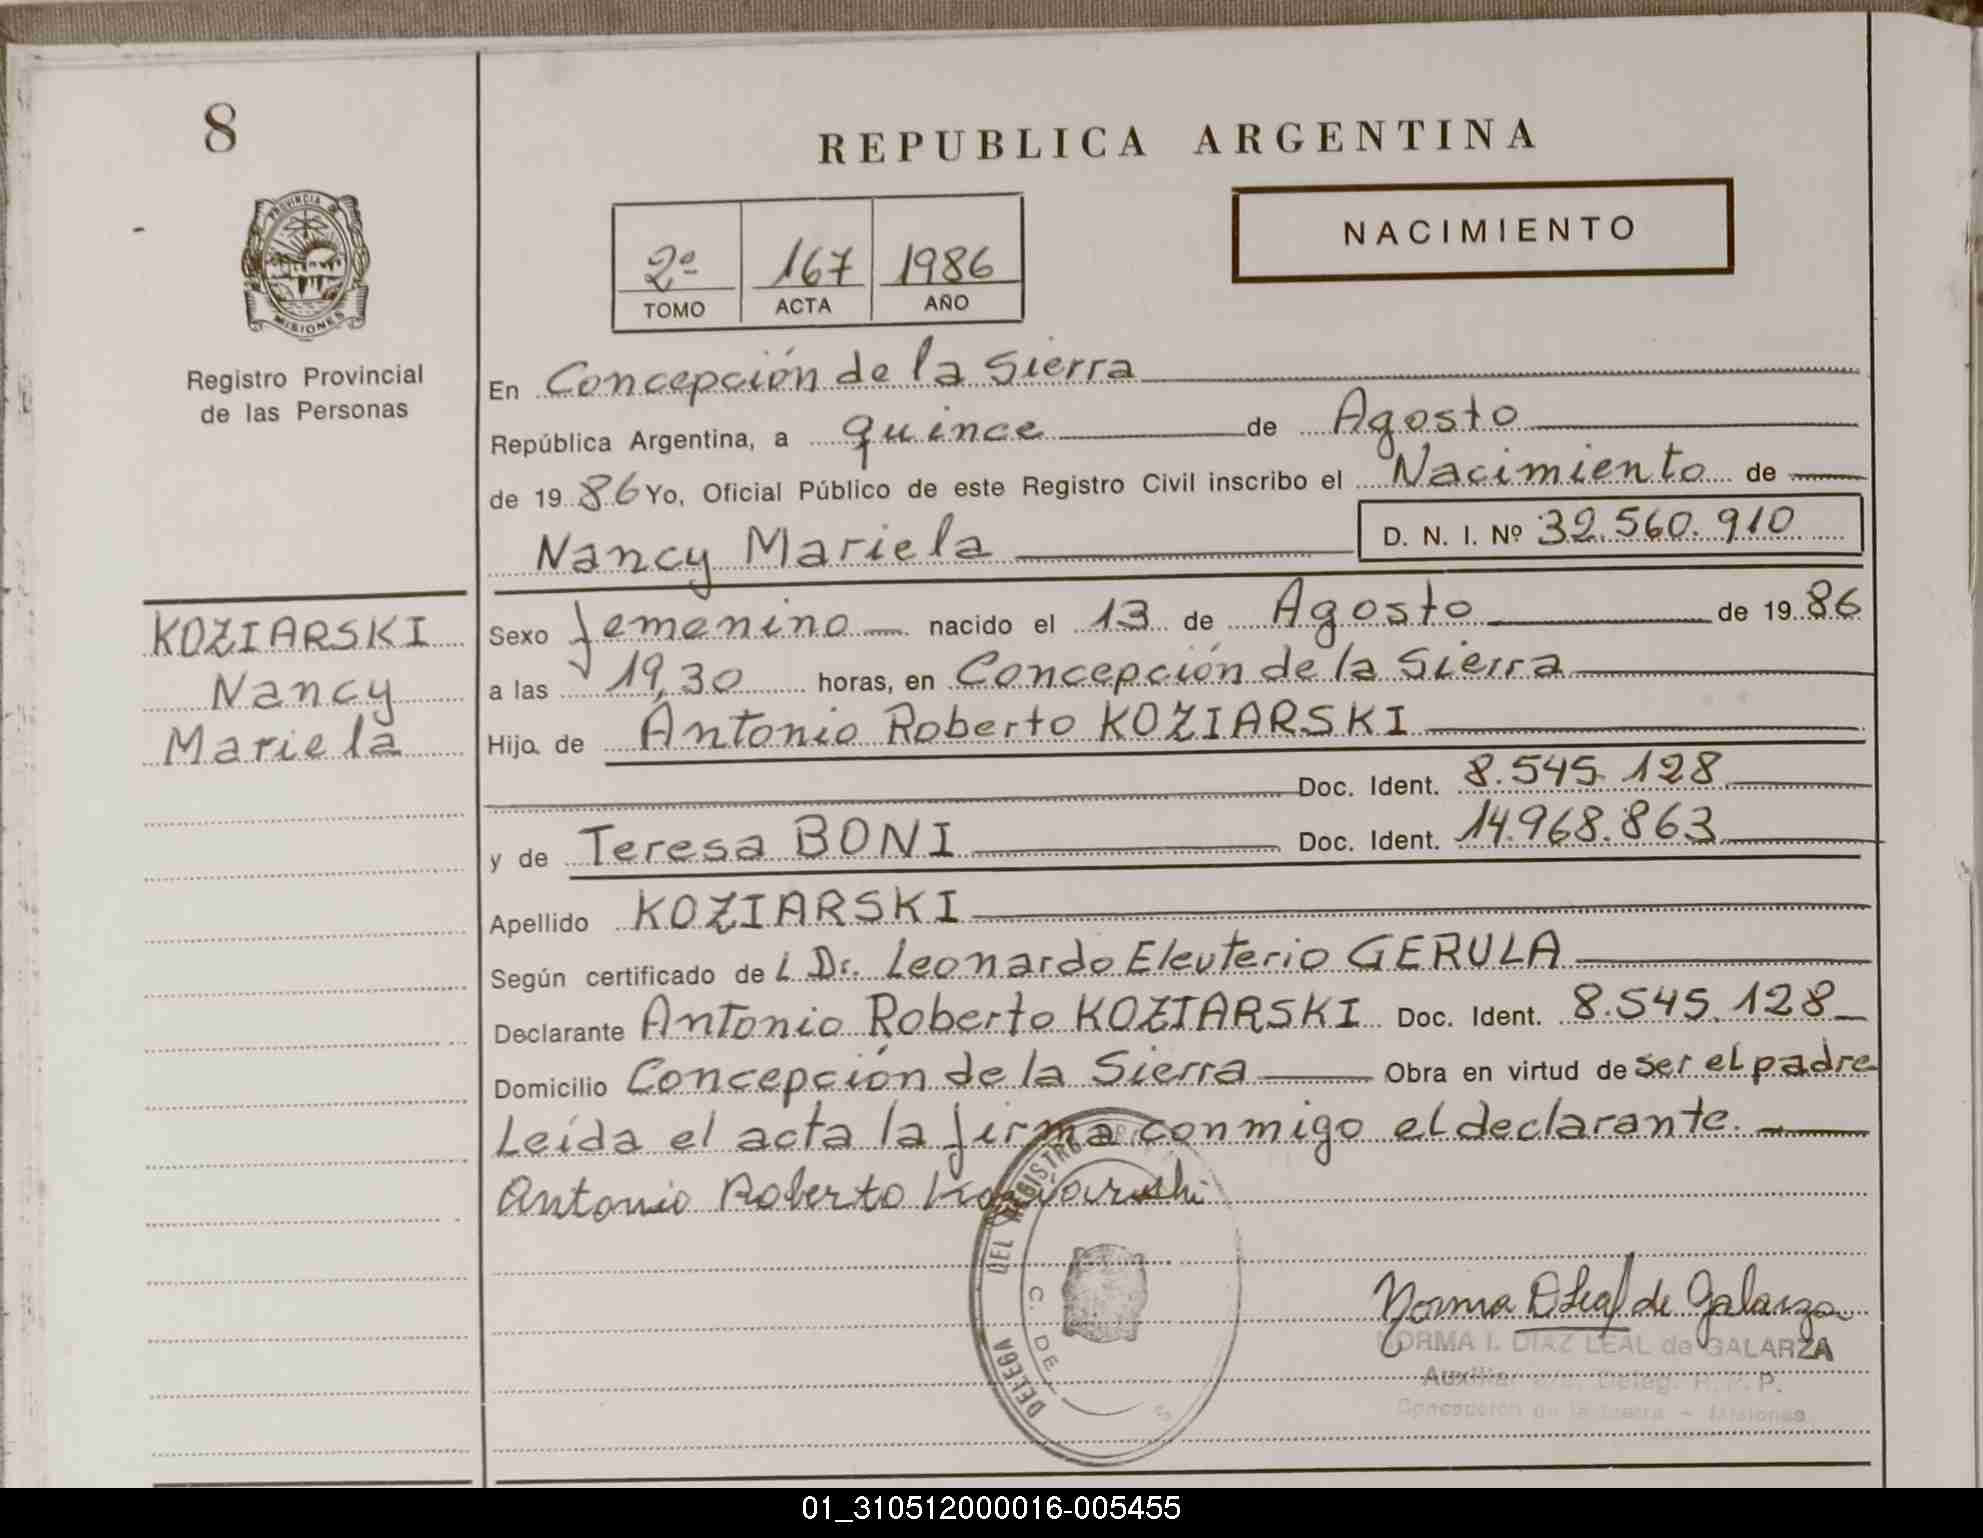 8
REPUBLICA ARGENTINA
PROVINCIA DE
MISIONES
Registro Provincial
de las Personas
2º 167 1986
TOMO ACTA AÑO
NACIMIENTO
En Concepción de la Sierra
República Argentina, a quince de Agosto
de 1986 Yo, Oficial Público de este Registro Civil inscribo el Nacimiento de
Nancy Mariela D. N. I. Nº 32.560.910
KOZIARSKI
Nancy
Mariela
Sexo femenino nacido el 13 de Agosto de 1986
a las 19,30 horas, en Concepción de la Sierra
Hija de Antonio Roberto KOZIARSKI
Doc. Ident. 8.545.128
y de Teresa BONI Doc. Ident. 14.968.863
Apellido KOZIARSKI
Según certificado del Dr. Leonardo Eleuterio GERULA
Declarante Antonio Roberto KOZIARSKI Doc. Ident. 8.545.128
Domicilio Concepción de la Sierra Obra en virtud de ser el padre
Leída el acta la firma conmigo el declarante.
Antonio Roberto Koziarski
DELEGA DEL REGISTRO
C. DE
Norma D Leal de Galarza
NORMA I. DIAZ LEAL de GALARZA
Auxiliar Deleg. R. P. P.
Concepción de la Sierra - Misiones
01_310512000016-005455